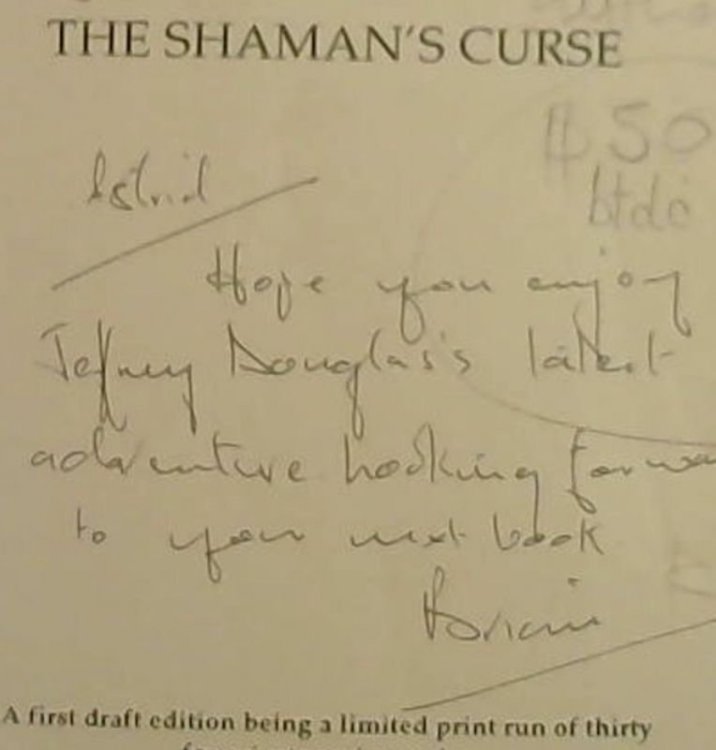 THE SHAMAN'S CURSE
$50
Astrid
Hope you enjoy
Jeffrey Douglas's latest
adventure looking forwa
to your next book
Brian
A first draft edition being a limited print run of thirty